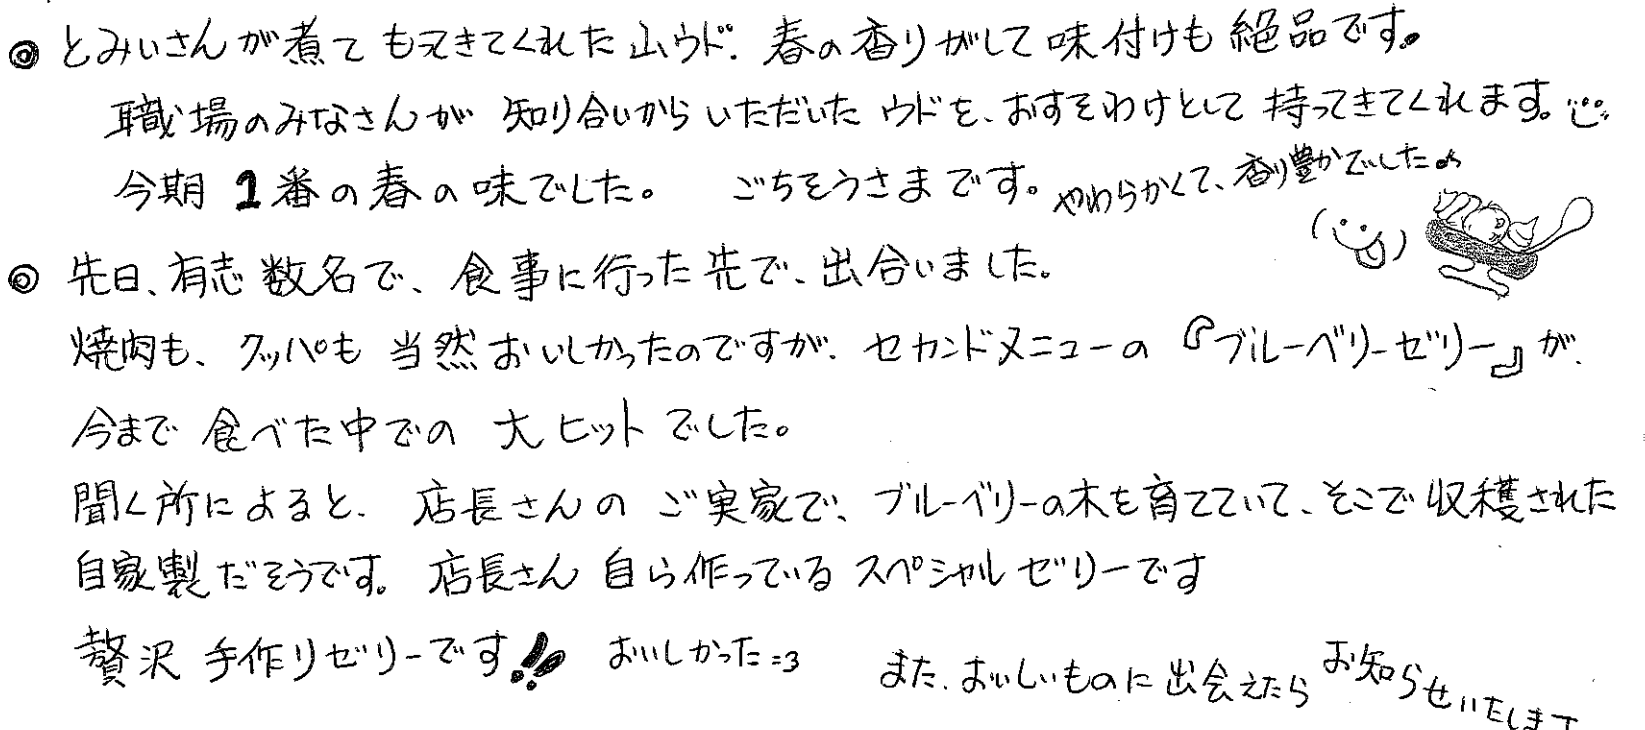 ◎ とみぃさんが煮てもってきてくれた山ウド、春の香りがして味付けも絶品です。
職場のみなさんが知り合いからいただいたウドを、おすそわけとして持ってきてくれます。
今期1番の春の味でした。 ごちそうさまです。 やわらかくて、香り豊かでした♪
◎ 先日、有志数名で、食事に行った先で、出合いました。
焼肉も、クッパも当然おいしかったのですが、セカンドメニューの『ブルーベリーゼリー』が、
今まで食べた中での大ヒットでした。
聞く所によると、店長さんのご実家で、ブルーベリーの木を育てていて、そこで収穫された
自家製だそうです。店長さん自ら作っているスペシャルゼリーです
贅沢手作りゼリーです!! おいしかった=3 また、おいしいものに出会えたらお知らせいたします